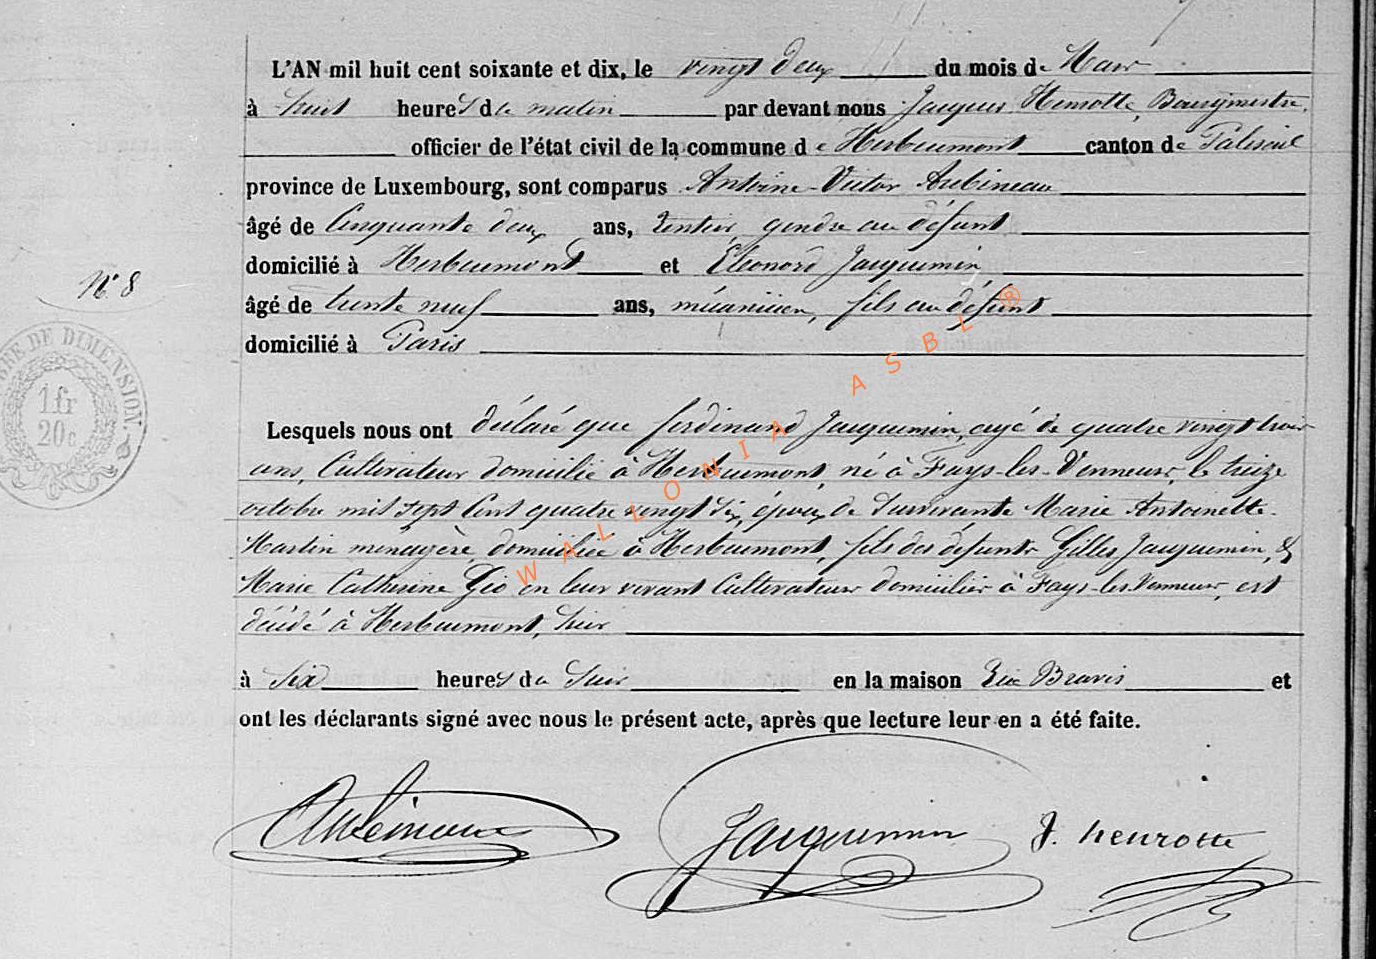 L'AN mil huit cent soixante et dix, le vingt deux du mois de Mars
à huit heures du matin par devant nous Jacques Henrotte, Bourgmestre,
officier de l'état civil de la commune de Herbeumont canton de Paliseul
province de Luxembourg, sont comparus Antoine-Victor Aubineau
âgé de Cinquante deux ans, rentier gendre au défunt
domicilié à Herbeumont et Éléonord Jacquemin
N° 8
âgé de trente neuf ans, mécanicien, fils au défunt
domicilié à Paris
TIMBRE DE DIMENSION.
1 fr
20c
Lesquels nous ont déclaré que ferdinand Jacquemin, agé de quatre vingt trois
ans, Cultivateur domicilié à Herbeumont, né à Fays-les-Venneurs, le treize
octobre mil sept Cent quatre vingt six, époux de Survivante Marie Antoinette
Martin ménagère, domiciliée à Herbeumont, fils des défunts Gilles Jacquemin, &
Marie Catherine Gio en leur vivant Cultivateurs domiciliés à Fays-les-Venneurs, est
décédé à Herbeumont, hier
à Six heures du Soir en la maison Rue Bravis et
ont les déclarants signé avec nous le présent acte, après que lecture leur en a été faite.
Aubineau Jacquemin J. henrotte
WALLONIA ASBL ®